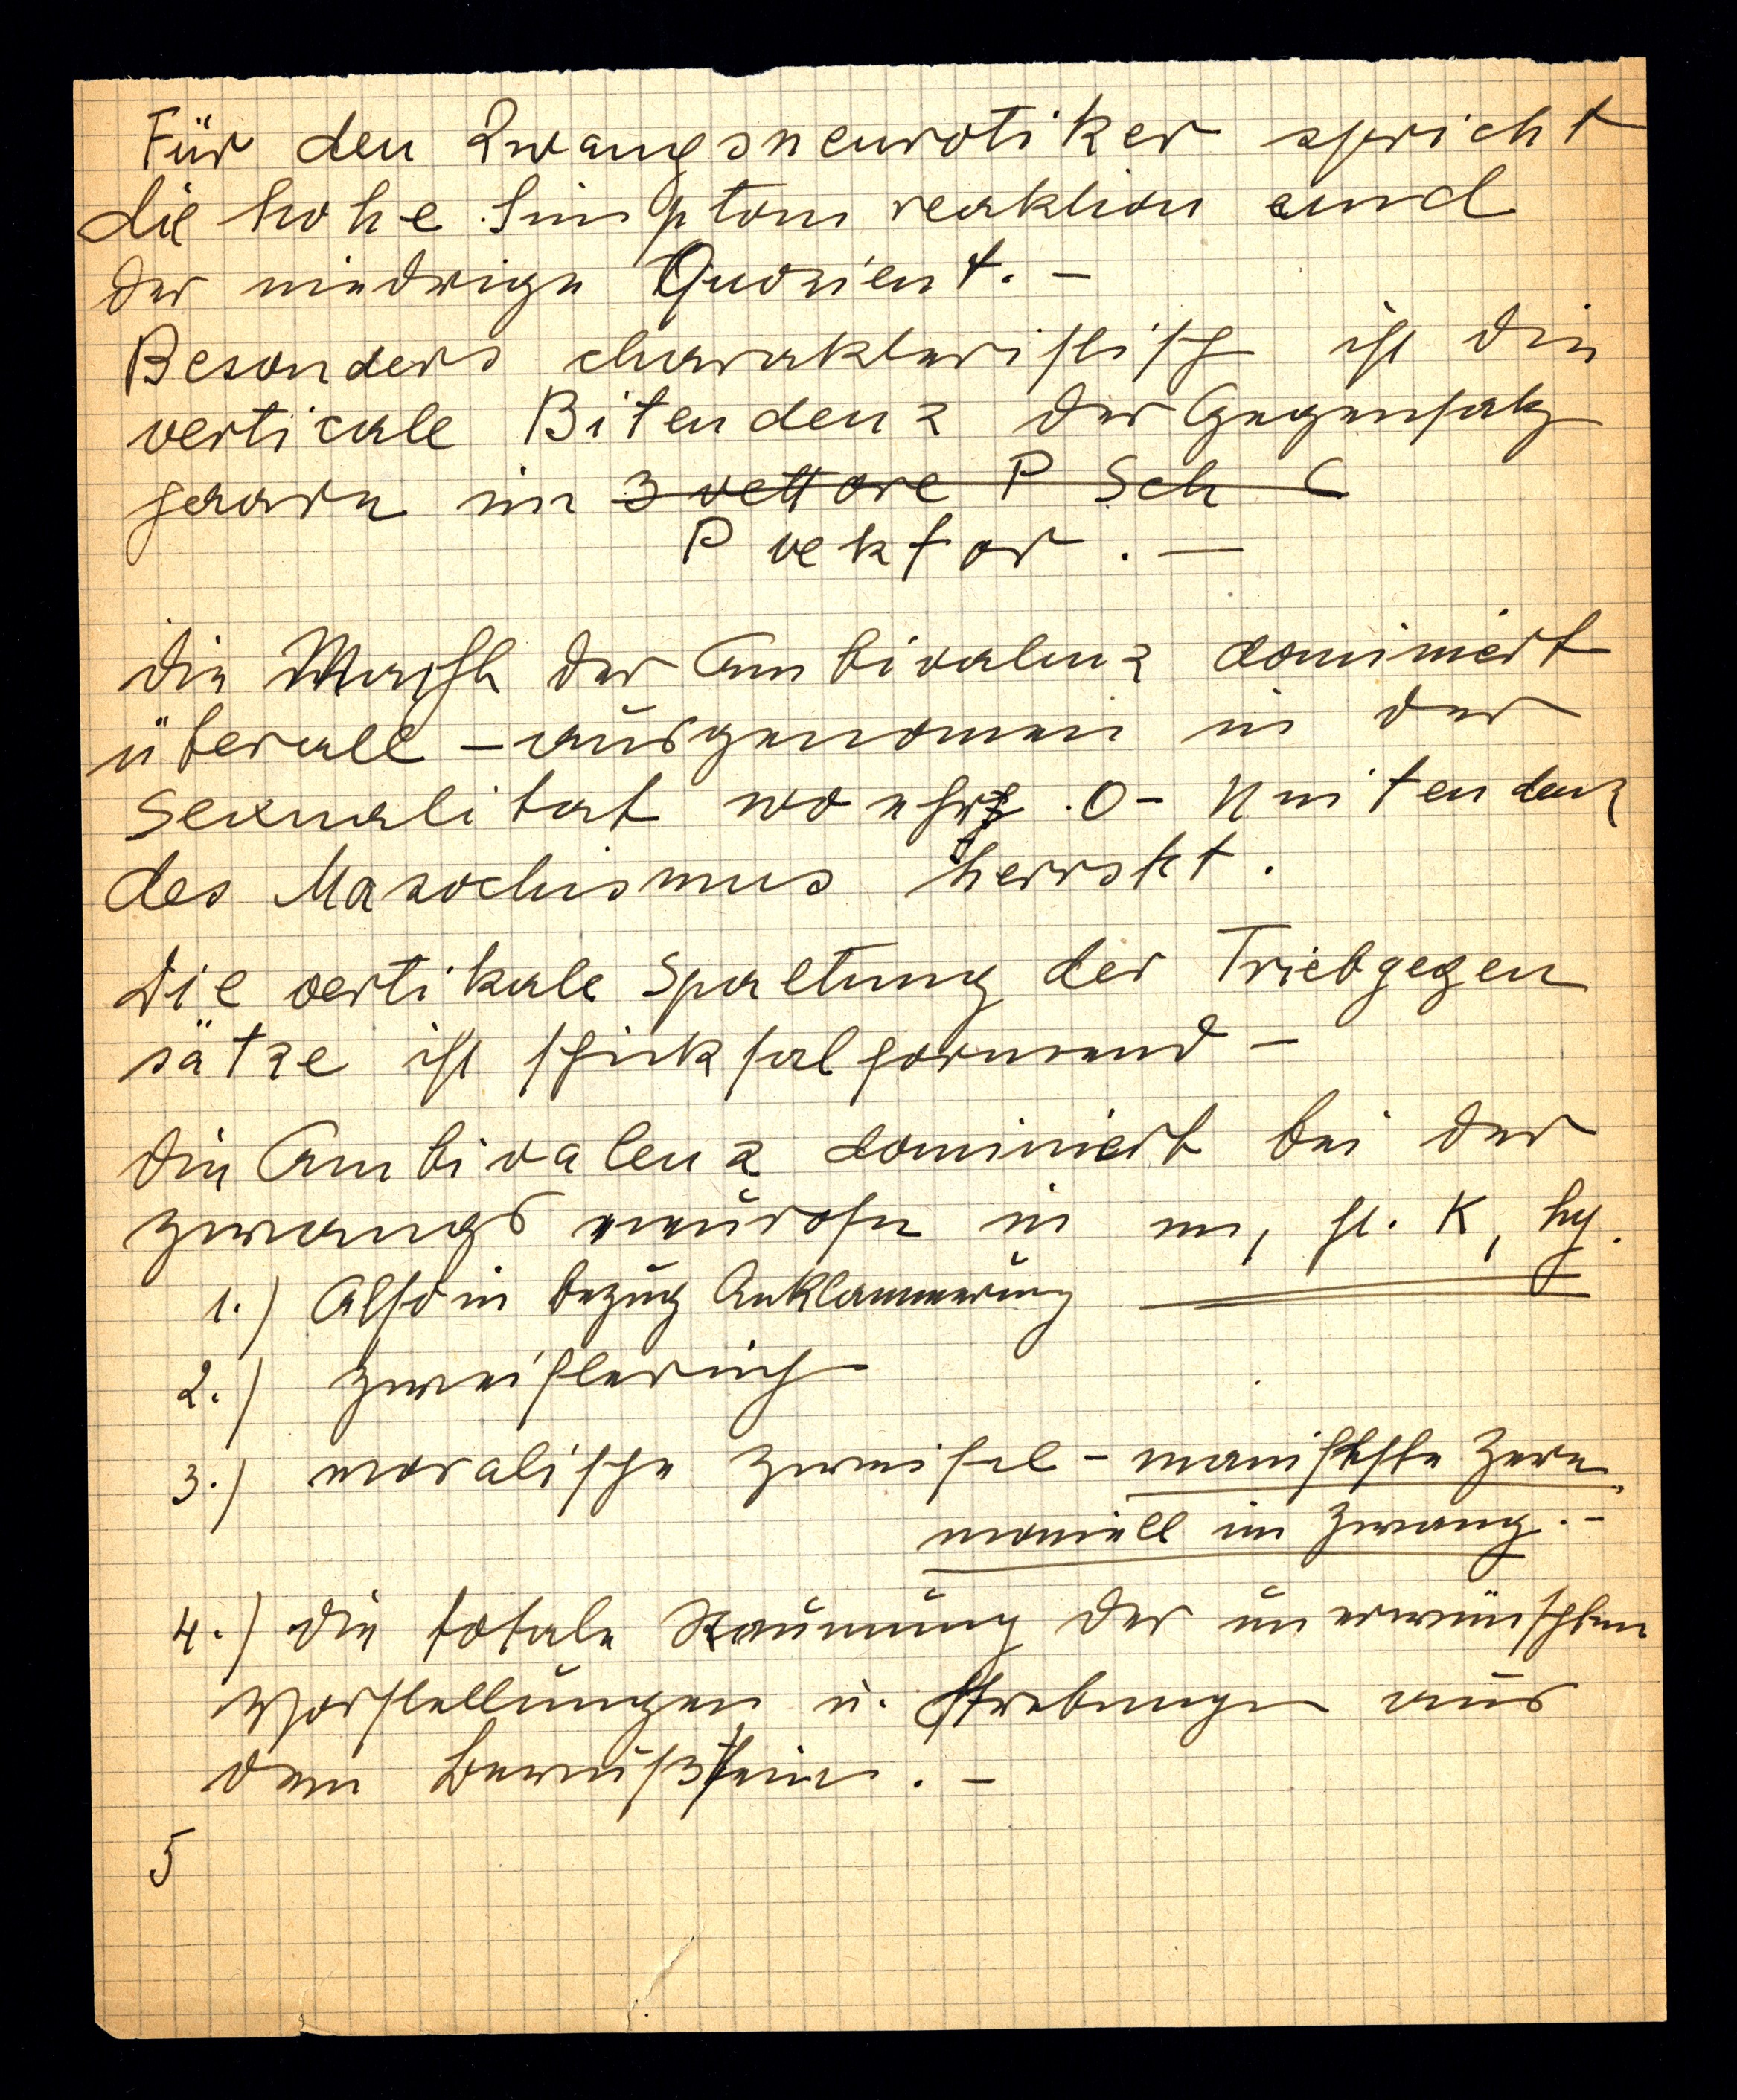 Für den Zwangsneurotiker spricht
die hohe Simptomreaktion und
der niedrige Quozient. –
Besonders charakteristisch ist die
verticale Bitendenz der Gegensatz
im 3 vettore P Sch C
P vektor. –
die Macht der Ambivalenz dominiert
überall – ausgenomen in der
Sexualitat wo O– Unitendenz
des Masochismus herrskt.
Die vertikale Spaltung der Triebgegen
sätze ist schicksalformend –
die Ambivalenz dominiert bei der
zwangsneurose in m, K, hy.
1.) Also in bezug Anklammerung
2.) zweiflerisch
3.) moralische Zweifel – manifeste Zere
moniell im Zwang. –
4.) die totale Räumung der unerwünschten
Vorstellungen u. Strebungen aus
dem Bewußtsein. –
5